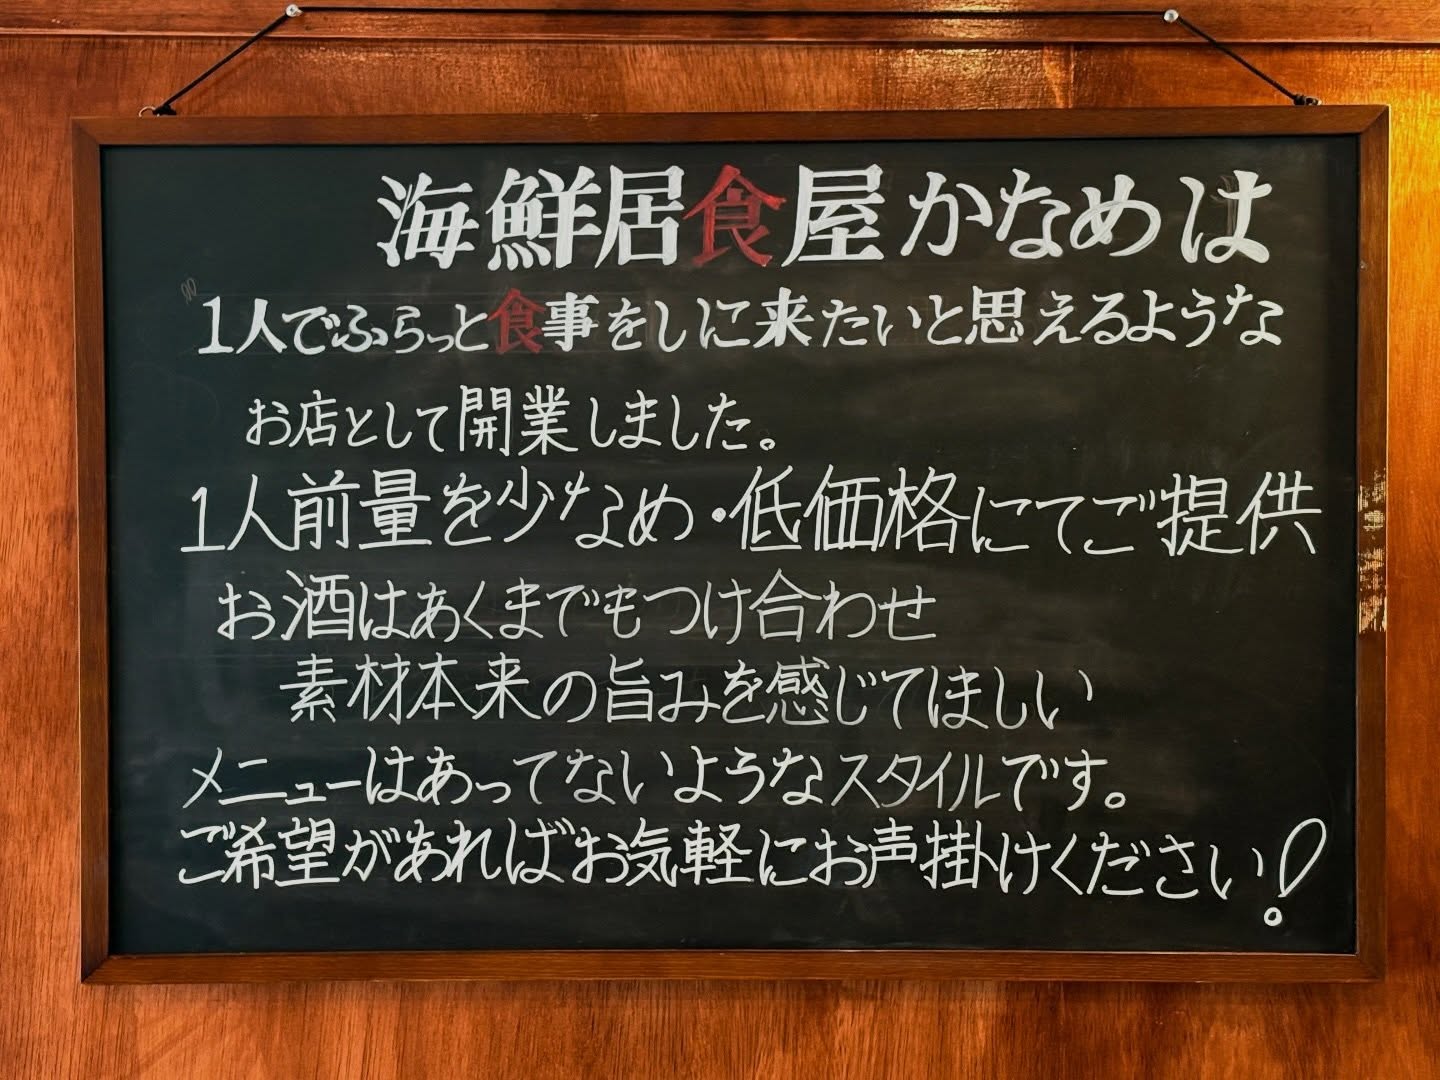 海鮮居食屋かなめは
1人でふらっと食事をしに来たいと思えるような
お店として開業しました。
1人前量を少なめ・低価格にてご提供
お酒はあくまでもつけ合わせ
素材本来の旨みを感じてほしい
メニューはあってないようなスタイルです。
ご希望があればお気軽にお声掛けください!